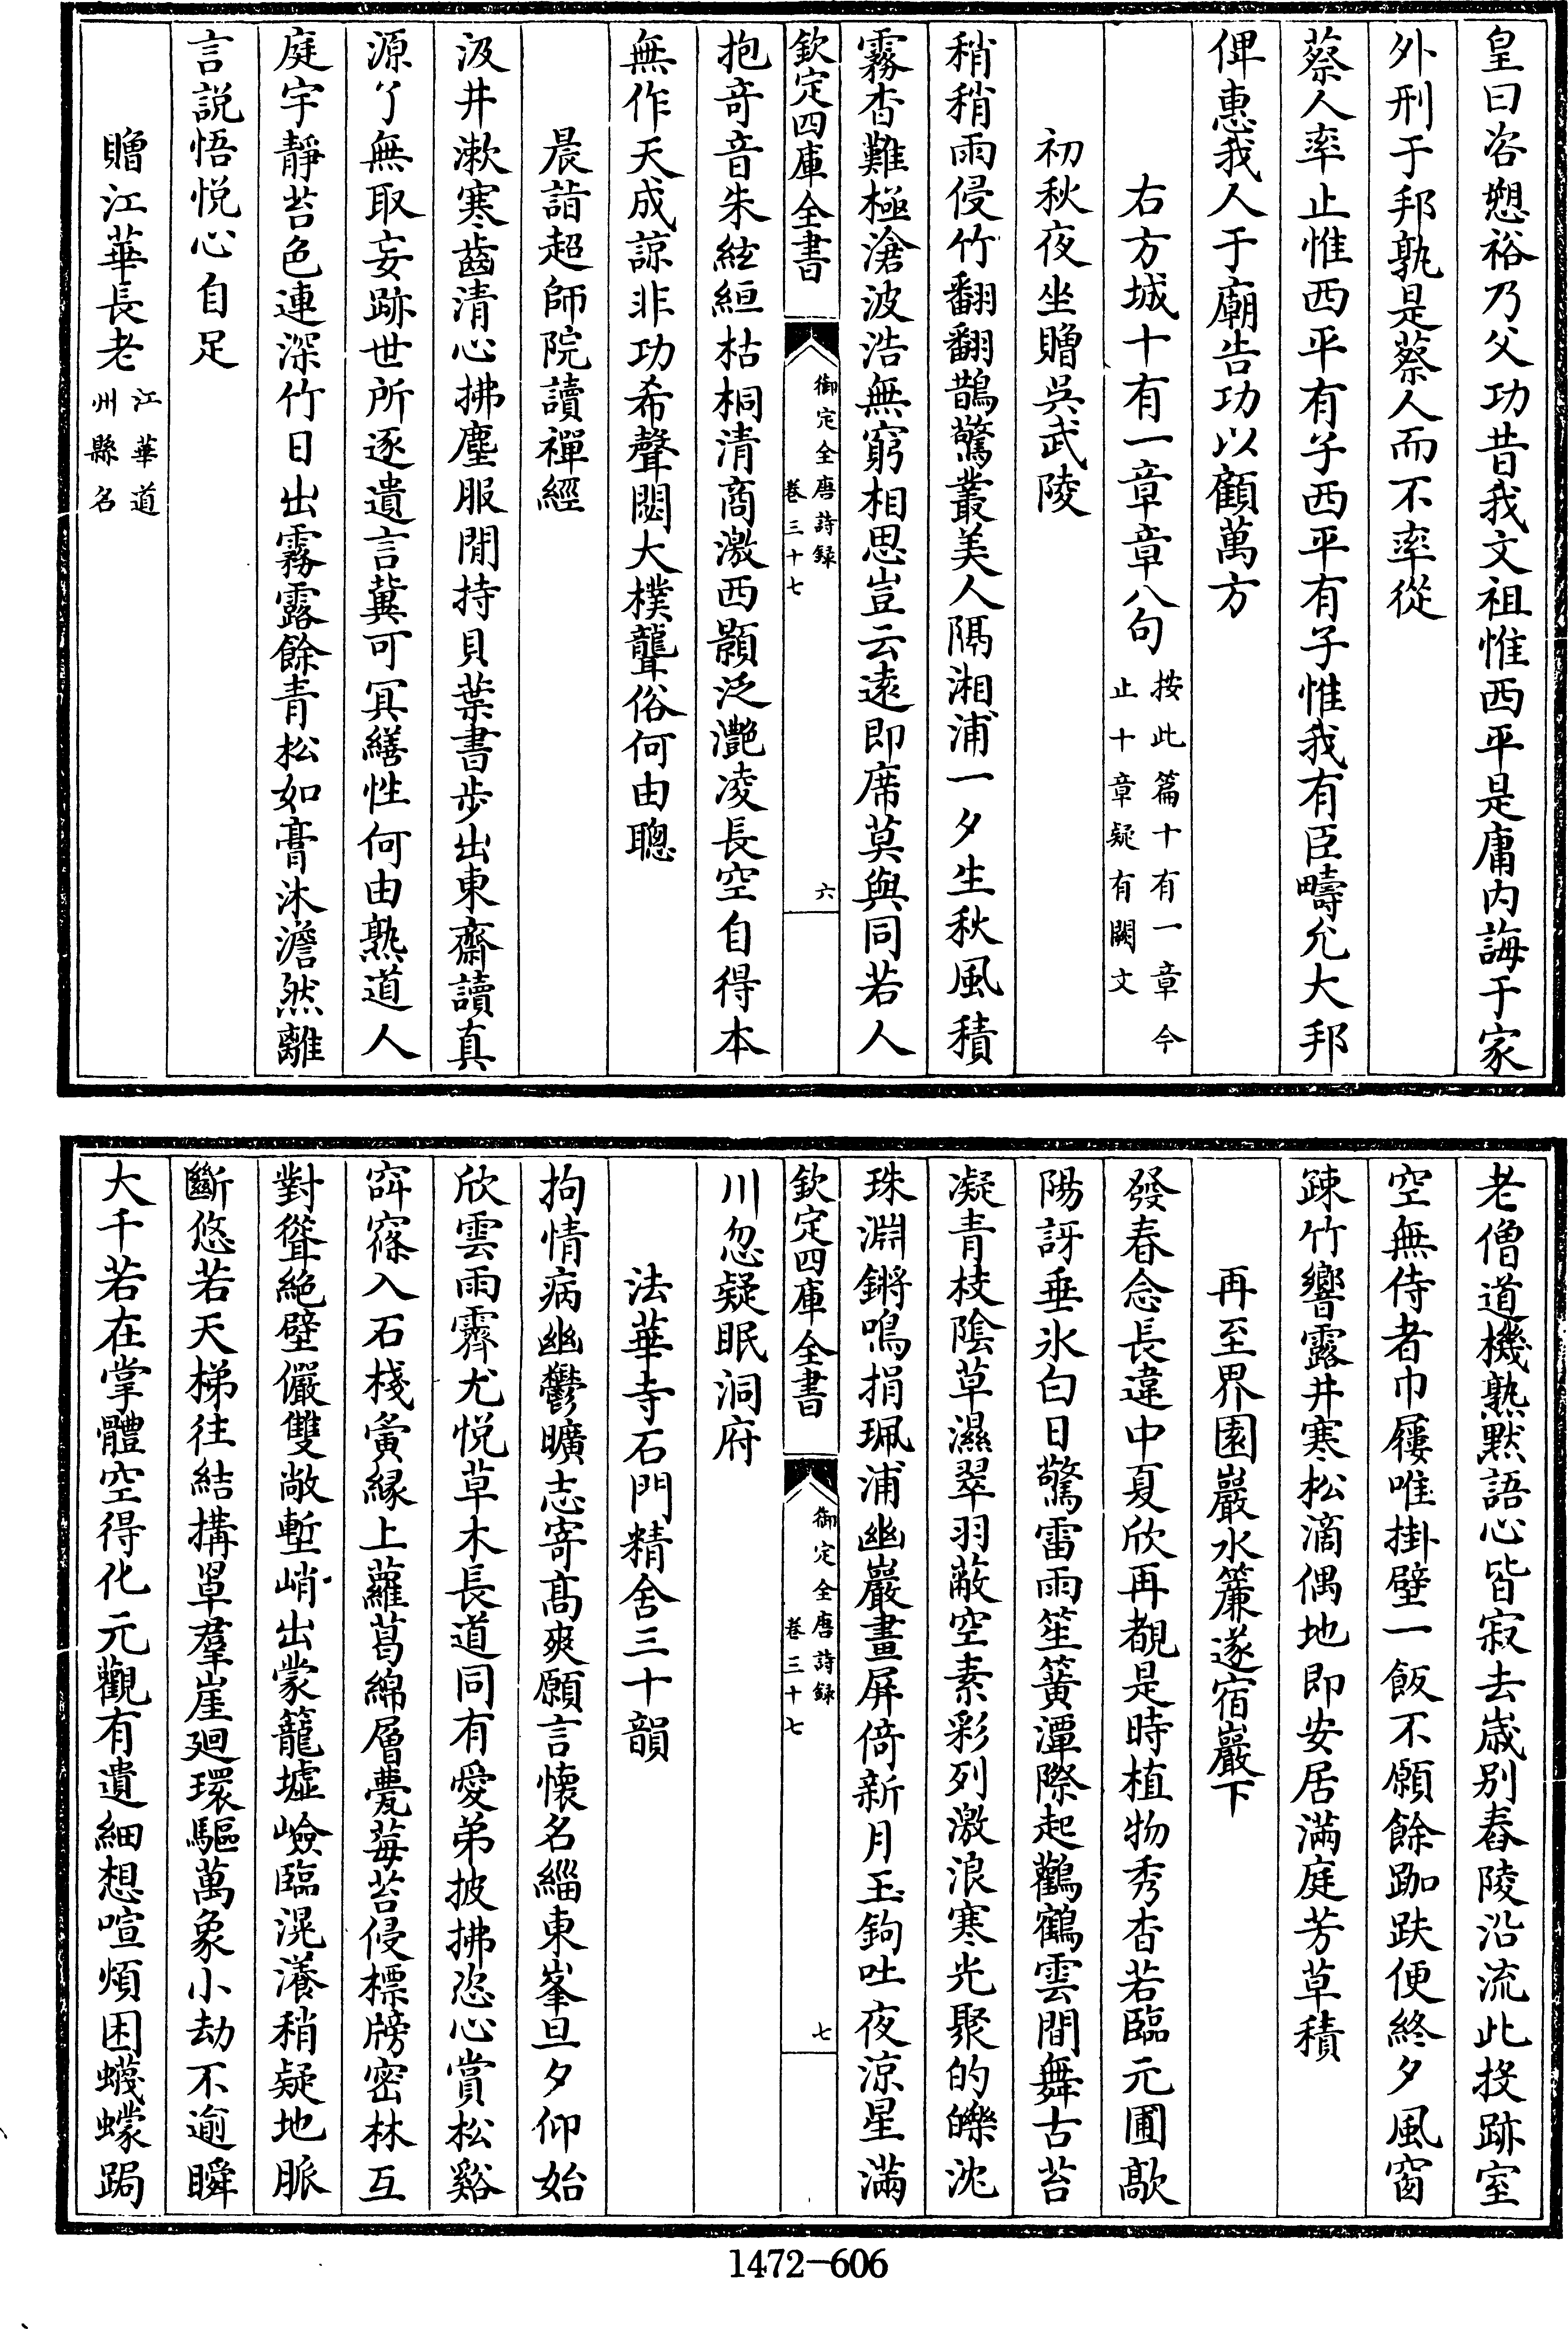 皇曰咨愬裕乃父功昔我文祖惟西平是庸内誨于家
外刑于邦孰是蔡人而不率從
蔡人率止惟西平有子西平有子惟我有臣疇允大邦
俾惠我人于廟告功以顧萬方
右方城十有一章章八句按此篇十有一章今止十章疑有闕文
初秋夜坐贈吳武陵
稍稍雨侵竹翻翻鵲驚叢美人隔湘浦一夕生秋風積
霧杳難極滄波浩無窮相思豈云逺即席莫與同若人
欽定四庫全書
御定全唐詩録
卷三十七
六
抱奇音朱絃緪枯桐清商激西顥泛灧凌長空自得本
無作天成諒非功希聲閟大樸聾俗何由聰
晨詣超師院讀禪經
汲井漱寒齒清心拂塵服閒持貝葉書步出東齋讀真
源了無取妄跡世所逐遺言冀可冥繕性何由熟道人
庭宇靜苔色連深竹日出霧露餘青松如膏沐澹然離
言說悟悦心自足
贈江華長老江華道州縣名
老僧道機熟黙語心皆寂去嵗别舂陵沿流此投跡室
空無侍者巾屨唯掛壁一飯不願餘跏趺便終夕風窗
踈竹響露井寒松滴偶地即安居滿庭芳草積
再至界園巖水簾遂宿巖下
發春念長違中夏欣再覩是時植物秀杳若臨元圃歊
陽訝垂氷白日驚雷雨笙簧潭際起鸛鶴雲間舞古苔
凝青枝陰草濕翠羽蔽空素彩列激浪寒光聚的皪沈
珠淵鏘鳴捐珮浦幽巖畫屏倚新月玉鉤吐夜涼星滿
欽定四庫全書
御定全唐詩録
卷三十七
七
川忽疑眠洞府
法華寺石門精舍三十韻
拘情病幽鬱曠志寄高爽願言懷名緇東峯旦夕仰始
欣雲雨霽尤悦草木長道同有愛弟披拂恣心賞松谿
窱窱入石棧夤縁上蘿葛綿層甍莓苔侵標牓密林互
對聳絶壁儼雙敞塹峭出蒙籠墟嶮臨滉瀁稍疑地脈
斷悠若天梯往結搆罩羣崖廻環驅萬象小劫不逾瞬
大千若在掌體空得化元觀有遺細想喧煩困蠛蠓跼
1472-606